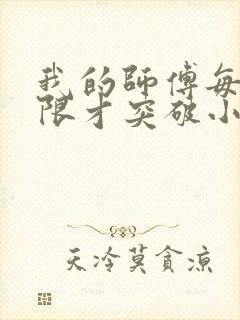 我的師傅每
限才突破小
天冷莫貪涼